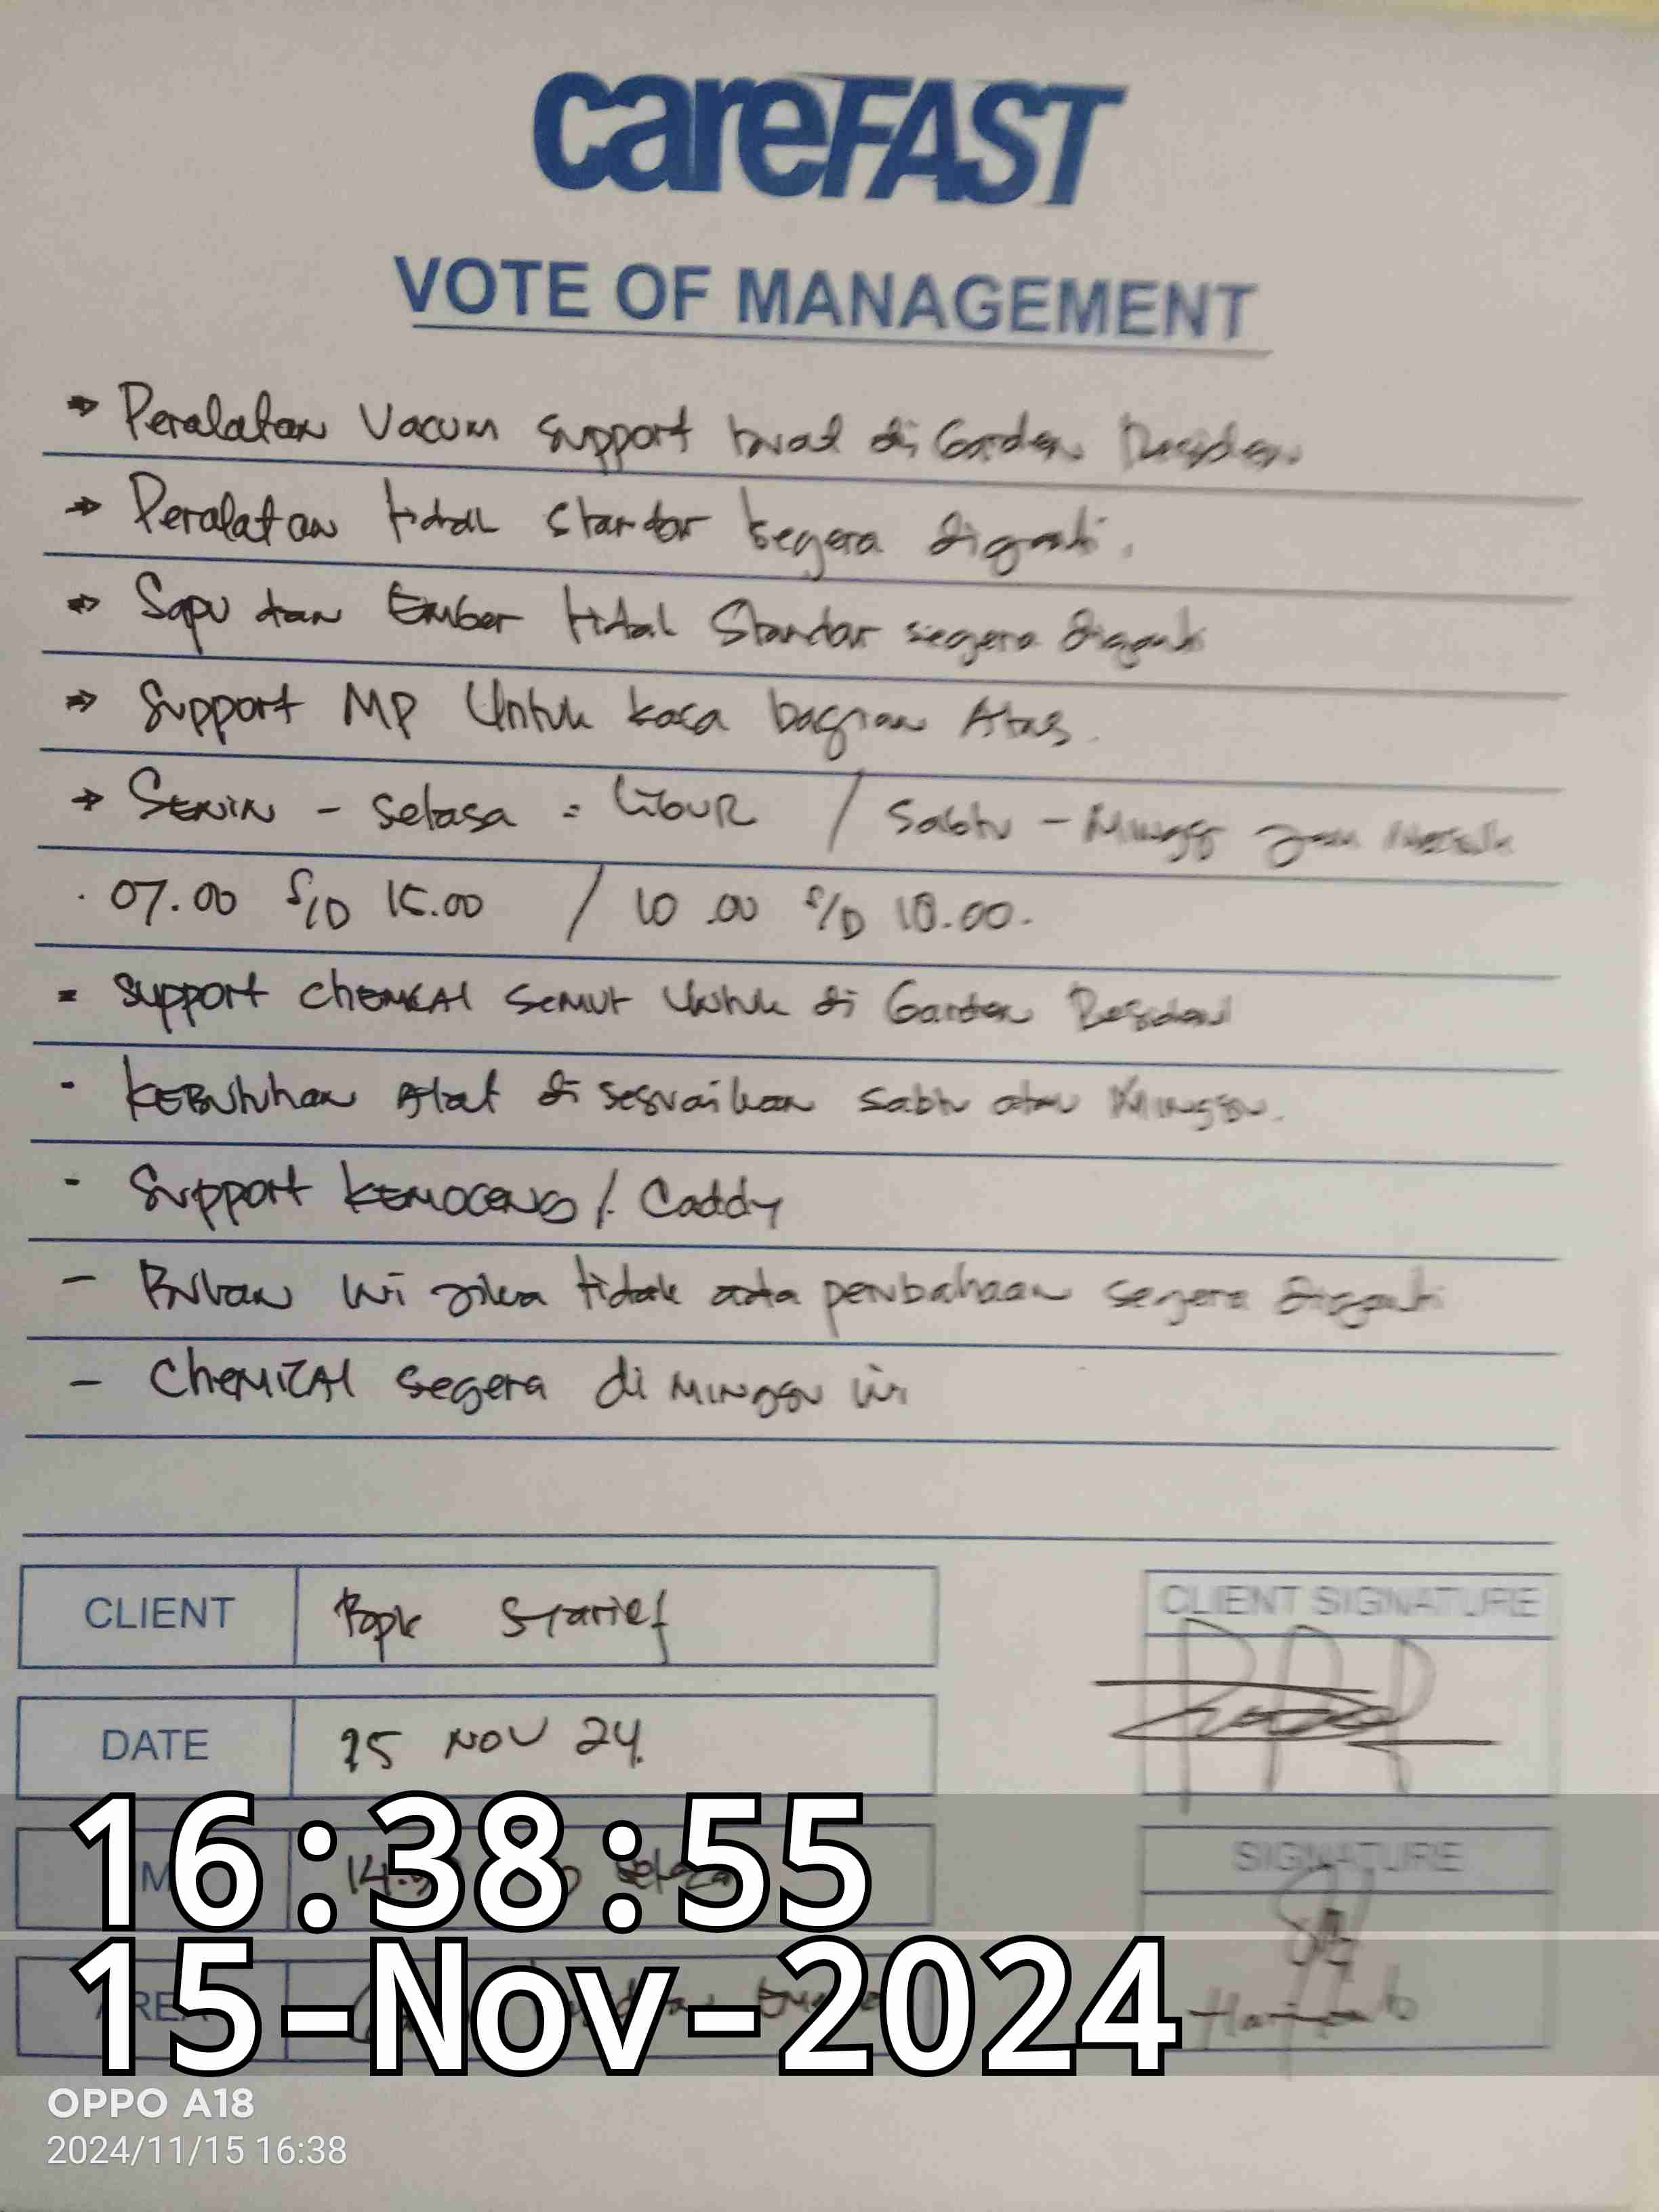 careFAST
VOTE OF MANAGEMENT
→ Peralatan Vacum support buat di Garden Residen
→ Peralatan tidak standar segera diganti.
→ Sapu dan Ember tidak Standar segera diganti
→ Support MP Untuk kaca bagian Atas.
→ SENIN - Selasa = LibUR / Sabtu - Minggu Jam Masuk
. 07.00 S/D 15.00 / 10.00 S/D 18.00.
= Support CHEMICAL SEMUT Untuk di Garden Residen
- KEButuhan Alat di sesuaikan Sabtu atau Minggu.
- Support KEMOCENG / Caddy
- Bulan ini jika tidak ada perubahaan segera diganti
- CHEMICAL segera di MINGGU ini
CLIENT Bapk Syarief
CLIENT SIGNATURE
DATE 15 NOV 24.
16:38:55
SIGNATURE
15-Nov-2024
Hariyanto
OPPO A18
2024/11/15 16:38